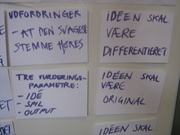 UDFORDRINGER
- AT DEN SVAGESTE
STEMME HØRES
IDEEN SKAL
VÆRE
DIFFERENTIERET
TRE VURDERINGS-
PARAMETRE:
- IDE
- SPIL
- OUTPUT
IDEEN SKAL
VÆRE
ORIGINAL